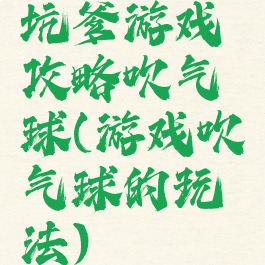 坑爹游戏
攻略吹气
球(游戏吹
气球的玩
法)